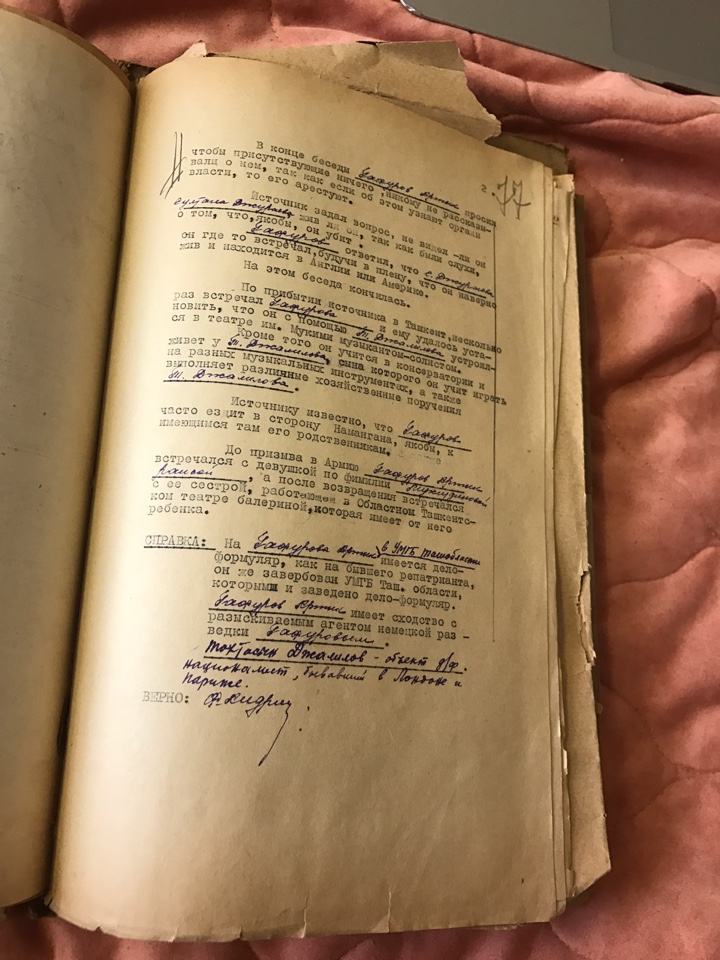 2.
77
В конце беседы Гафуров Эркин просил
чтобы присутствующие ничего ,никому не рассказы-
вали о нем, так как если об этом узнают органы
власти, то его арестуют.
Источник задал вопрос, не видел -ли он
Султана Джураева жив ли он, так как были слухи,
о том, что,якобы, он убит .
Гафуров ответил, что С. Джураева
он где то встречал,будучи в плену, что он наверно
жив и находится в Англии или Америке.
На этом беседа кончилась.
По прибытии источника в Ташкент,несколько
раз встречал Гафурова и ему удалось уста-
новить, что он с помощью Т. Джалилова устроил-
ся в театре им. Мукими музыкантом-солистом.
Кроме того он учится в консерватории и
живет у Т. Джалилова, сына которого он учит играть
на разных музыкальных инструментах, а также
выполняет разлинные хозяйственные поручения
Т. Джалилова.
Источнику известно, что Гафуров
часто ездит в сторону Намангана, якобы, к
имеющимся там его родственникам.
До призыва в Армию Гафуров Эркин
встречался с девушкой по фимилии
Раисой , а после возвращения встречался
с ее сестрой, работающей в Областном Ташкентс-
ком театре балериной,которая имеет от него
ребенка.
СПРАВКА: На Гафурова Эркин в УМГБ Ташобласти имеется дело-
формуляр, как на бывшего репатрианта,
он же завербован УМГБ Таш. области,
которыми и заведено дело-формуляр.
Гафуров Эркин имеет сходство с
разыскиваемым агентом немецкой раз -
ведки Гафуровым .
Тохтасын Джалилов - объект д/ф.
националист, бывавший в Лондоне и
Париже.
ВЕРНО: